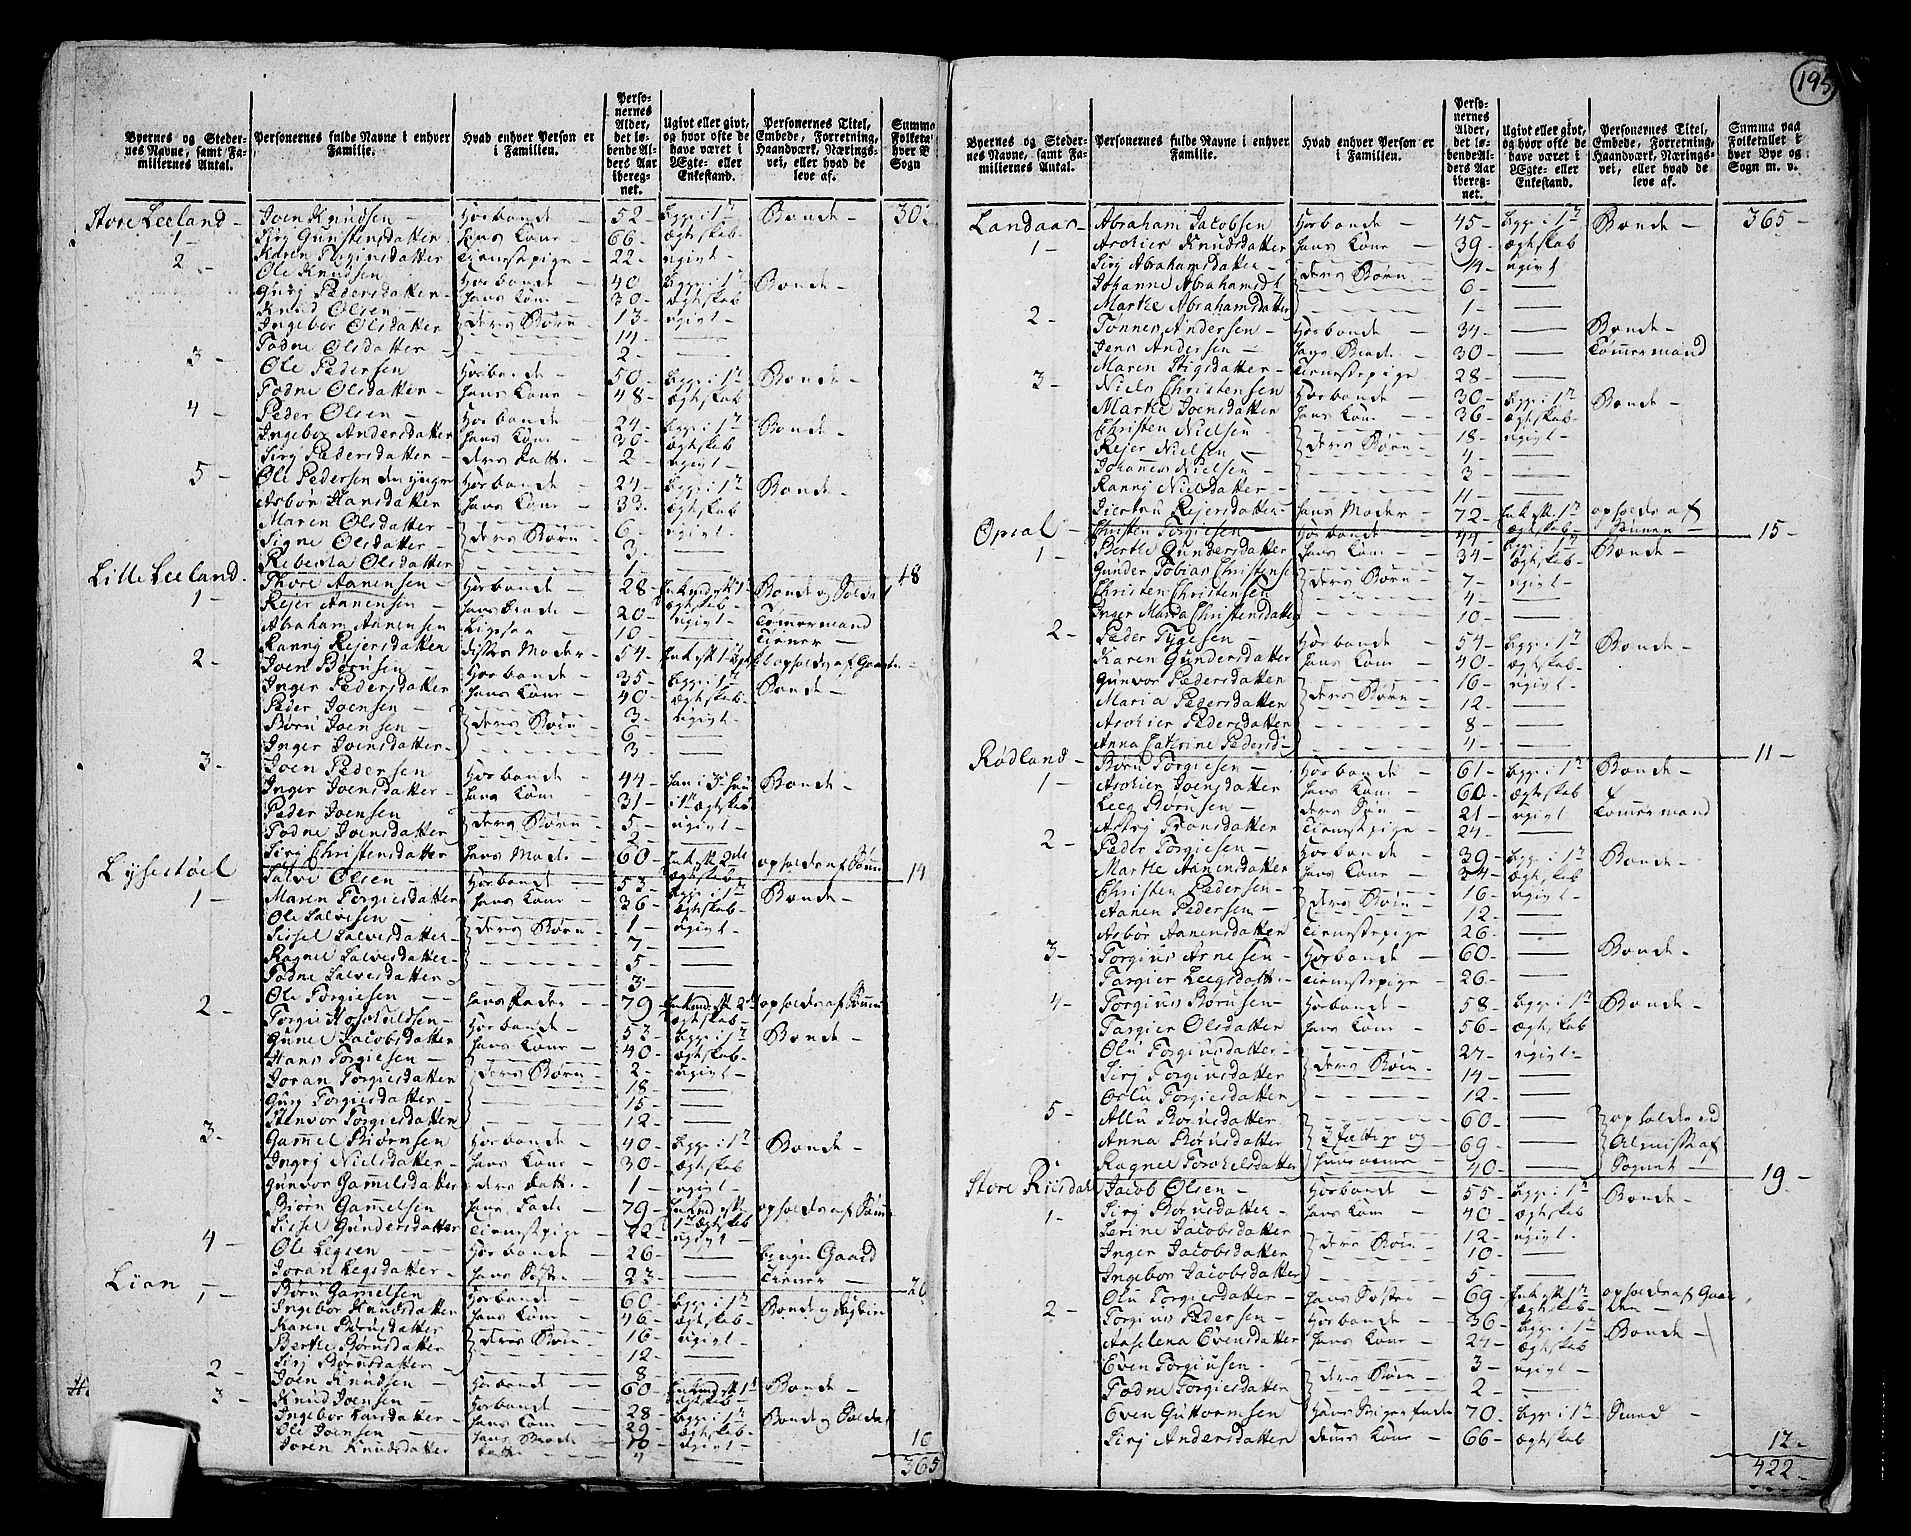 195
Byernes og Stedernes Navne, samt Familiernes Antal.
Personernes fulde Navne i enhver Familie.
Hvad enhver Person er i Familien.
Personernes Alder, det løbende Alders Aar iberegnet.
Ugivt eller givt, og hvor ofte de have været i Ægte- eller Enkestand.
Personernes Titel, Embede, Forretning, Haandværk, Næringsvei, eller hvad de leve af.
Summa
Folketa
hver B
Sogn
Store Leeland - Joen Knudsen - Hosbonde - 52 - begge i 1te Bonde - 30
1 - Sirj Gunstensdatter hans Kone - 66 - Ægteskab
Karen Torginsdatter Tienestepige - 22 - ugivt -
2 - Ole Knudsen Hosbonde - 40 begge i 1te Bonde -
Gurj Pedersdatter - hans Kone - 30 - Ægteskab
Knud Olsen - deres Børn - 13 - ugivt -
Ingebor Olsdatter 14 -
Todne Olsdatter - 2 -
3 - Ole Pedersen Hosbonde - 50 - begge i 1te Bonde -
Todne Olsdatter - hans Kone - 48 - Ægteskab
4 - Peder Olsen - Hosbonde - 24 - begge i 1te Bonde -
Ingebor Andersdatter hans Kone - 30 - Ægteskab
Sirj Pedersdatter - deres Datter 2 - ugivt -
5 - Ole Pedersen den yngre Hosbonde - 24 - begge i 1te Bonde -
Asbor Hansdatter hans Kone - 33 - Ægteskab
Maren Olsdatter - deres Børn - 6 - ugivt -
Signe Olsdatter - 3 -
Reberta Olsdatter 1 -
Lille Leeland - Thore Aanensen - Hosbonde - 28 - Bonde og Soldat 18
1 - Rejer Aanensen - hans Broder - 20 - ugivt - Tømermand
Abraham Aanensen Ligesaa - 10 - Tiener -
Ranny Rejersdatter disses Moder - 54 - opholdes af Gaarden
2 - Joen Børusen - Hosbonde - 35 - begge i 1te Bonde -
Inger Pedersdatter hans Kone - 40 - Ægteskab
Peder Joensen - deres Børn - 3 - ugivt -
Børu Joensen - 6 -
Inger Joensdatter - 3 -
3 - Joen Pedersen Hosbonde - 44 - Bonde -
Inger Joensdatter - hans Kone - 31 - i 1te Ægteskab
Peder Joensen deres Børn - 5 - ugivt -
Todne Joensdatter 2 -
Sirj Christensdatter hans Moder 60 - opholdes af Sønnen
Lyssestøel Salve Olsen - Hosbonde - 53 - begge i 1te Bonde - 14
1 - Maren Torgiesdatter hans Kone - 36 - Ægteskab -
Ole Salvesen - deres Børn - 1 - ugivt -
Sissel Salvesdatter - 7 -
Ragnel Salvesdatter - 5 -
Todne Salvesdatter - 3 -
Ole Torgiesen hans Fader - 79 - opholdes af Sønnen
2 - Torgie Hoskuldsen - Hosbonde - 53 - begge i 1te Bonde -
Gunel Jacobsdatter hans Kone - 40 - Ægteskab -
Hans Torgiesen - deres Børn - 2 - ugivt -
Joran Torgiesdatter 18 -
Gurj Torgiesdatter - 15 -
Stenvor Torgiesdatter 12 -
3 - Gamel Biørnsen Hosbonde - 40 - begge i 1te Bonde -
Ingrj Nielsdatter - hans Kone - 30 - Ægteskab
Gunvor Gamelsdatter deres Datter 1 - ugivt -
Biørn Gamelsen hans Fader 79 - opholdes af Sønnen
Sissel Gundersdatter Tienestepige - 22 - ugivt -
4 - Ole Legsen Hosbonde - 26 - Gaard
Joran Legsdatter - hans Søster 23 - Tiener -
Lian - Børu Gamelsen Hosbonde - 60 - begge i 1te 20
1 - Ingebor Knudsdatter hans Kone - 46 - Ægteskab -
Karen Børusdatter deres Børn 16 - ugivt -
Berthe Børusdatter 12 -
Sirj Børusdatter 8 -
2 - Joen Knudsen - Hosbonde - 60 - Bonde -
3 - Knud Joensen - Hosbonde - 28 - begge i 1te Bonde og Soldat
Ingebor Larsdatter - hans Kone - 29 - Ægteskab -
Ole Joensen - hans Broder 10 - ugivt -
Joren Knudsdatter Datter 4 - 10
365
Byernes og Stedernes Navne, samt Familiernes Antal.
Personernes fulde Navne i enhver Familie.
Hvad enhver Person er i Familien.
Personernes Alder, det løbende Alders Aar iberegnet.
Ugivt eller givt, og hvor ofte de have været i Ægte- eller Enkestand.
Personernes Titel, Embede, Forretning, Haandværk, Næringsvei, eller hvad de leve af.
Summa paa Folketallet i hver Bye og Sogn m. v.
Landaas - Abraham Jacobsen Hosbonde - 45 - begge i 1te Bonde - 365 -
1 - AroKier Knudsdatter hans Kone - 39 - Ægteskab
Sirj Abrahamsdatter - deres Børn - 14 - ugivt
Johanne Abrahamsdt 6 -
Marthe Abrahamsdatter 1 -
2 - Tønnes Andersen - Hosbonde - 34 - Bonde -
Jens Andersen - hans Broder - 30 - Tømermand
Maren Stigsdatter - Tienestepige 28 -
3 - Niels Christensen Hosbonde - 30 - begge i 1te Bonde -
Marthe Joensdatter hans Kone - 36 - Ægteskab -
Christen Nielsen - deres Børn - 18 - ugivt -
Rejer Nielsen - 4 -
Johanes Nielsen - 3 -
Ranny Nielsdatter - 11 -
Rejersdatter - hans Moder - 72 - opholdes af Sønnen
Opsal - Christen Torgiesen - Hosbonde - 44 - begge i 1te Bonde - 15 -
1 - Berthe Gundersdatter hans Kone - 34 - Ægteskab -
Gunder Tobias Christensen deres Børn - 7 - ugivt -
Christen Christensen 4 -
Inger Maria Christensdatter 10 -
2 - Peder Tygesen - Hosbonde - 54 - begge i 1te Bonde -
Karen Gundersdatter hans Kone - 40 - Ægteskab -
Gunvor Pedersdatter deres Børn - 16 - ugivt -
Maria Pedersdatter 12 -
AroKier Pedersdatter 8 -
Anna Catrine Pedersd - 4 -
Rødland - Børu Torgiesen - Hosbonde - 61 - begge i 1te Bonde - 11 -
1 - AroKier Joensdatter hans Kone - 60 - Ægteskab
Leeg Børusen - deres Søn - 21 - ugivt - Tømermand
Astrj Tronsdatter Tienestepige - 24 -
2 - Peder Torgiesen - Hosbonde - 39 - begge i 1te Bonde -
Marthe Aanensdatter hans Kone - 34 - Ægteskab
Christen Pedersen - deres Børn - 16 - ugivt -
Aanen Pedersen - 12 -
Asbør Aanensdatter Tienestepige 26 -
3 - Torgius Arnesen - Hosbonde - 60 - Bonde -
Targier Leegsdatter Tienestepige - 26 -
4 - Torgius Børusen - Hosbonde - 58 - begge i 1te Bonde -
Targier Olsdatter hans Kone - 56 - Ægteskab
Olu Torgiusdatter - deres Børn - 27 - ugivt -
Sirj Torgiusdatter 14 -
Torgiesdatter 12 -
5 - Allu Børusdatter 60 - opholdes ved
Anna Børusdatter fattige og 69 - Almisse af
Ragnel ToroKelsdatter 40 - Sognet -
Store Riisdal Jacob Olsen - Hosbonde - 55 - begge i 1te Bonde - 19 -
1 - Sirj Børusdatter - hans Kone - 40 - Ægteskab
Serine Jacobsdatter deres Børn - 12 - ugivt -
Inger Jacobsdatter 10 -
Ingebor Jacobsdatter 5 -
Olu Torgiesdatter - hans Søster 69 - opholdes af Gaarden
2 - Torgius Pedersen - Hosbonde - 36 - begge i 1te Bonde -
Aaselena Evensdatter hans Kone - 24 - Ægteskab
Even Torgiusen - deres Børn - 3 - ugivt
Todne Torgiesdatter 2 -
Even Guttormsen Hans Svigerfader 70 - begge i 1te
Sirj Andersdatter dennes Kone - 66 - Ægteskab 12 -
422 -